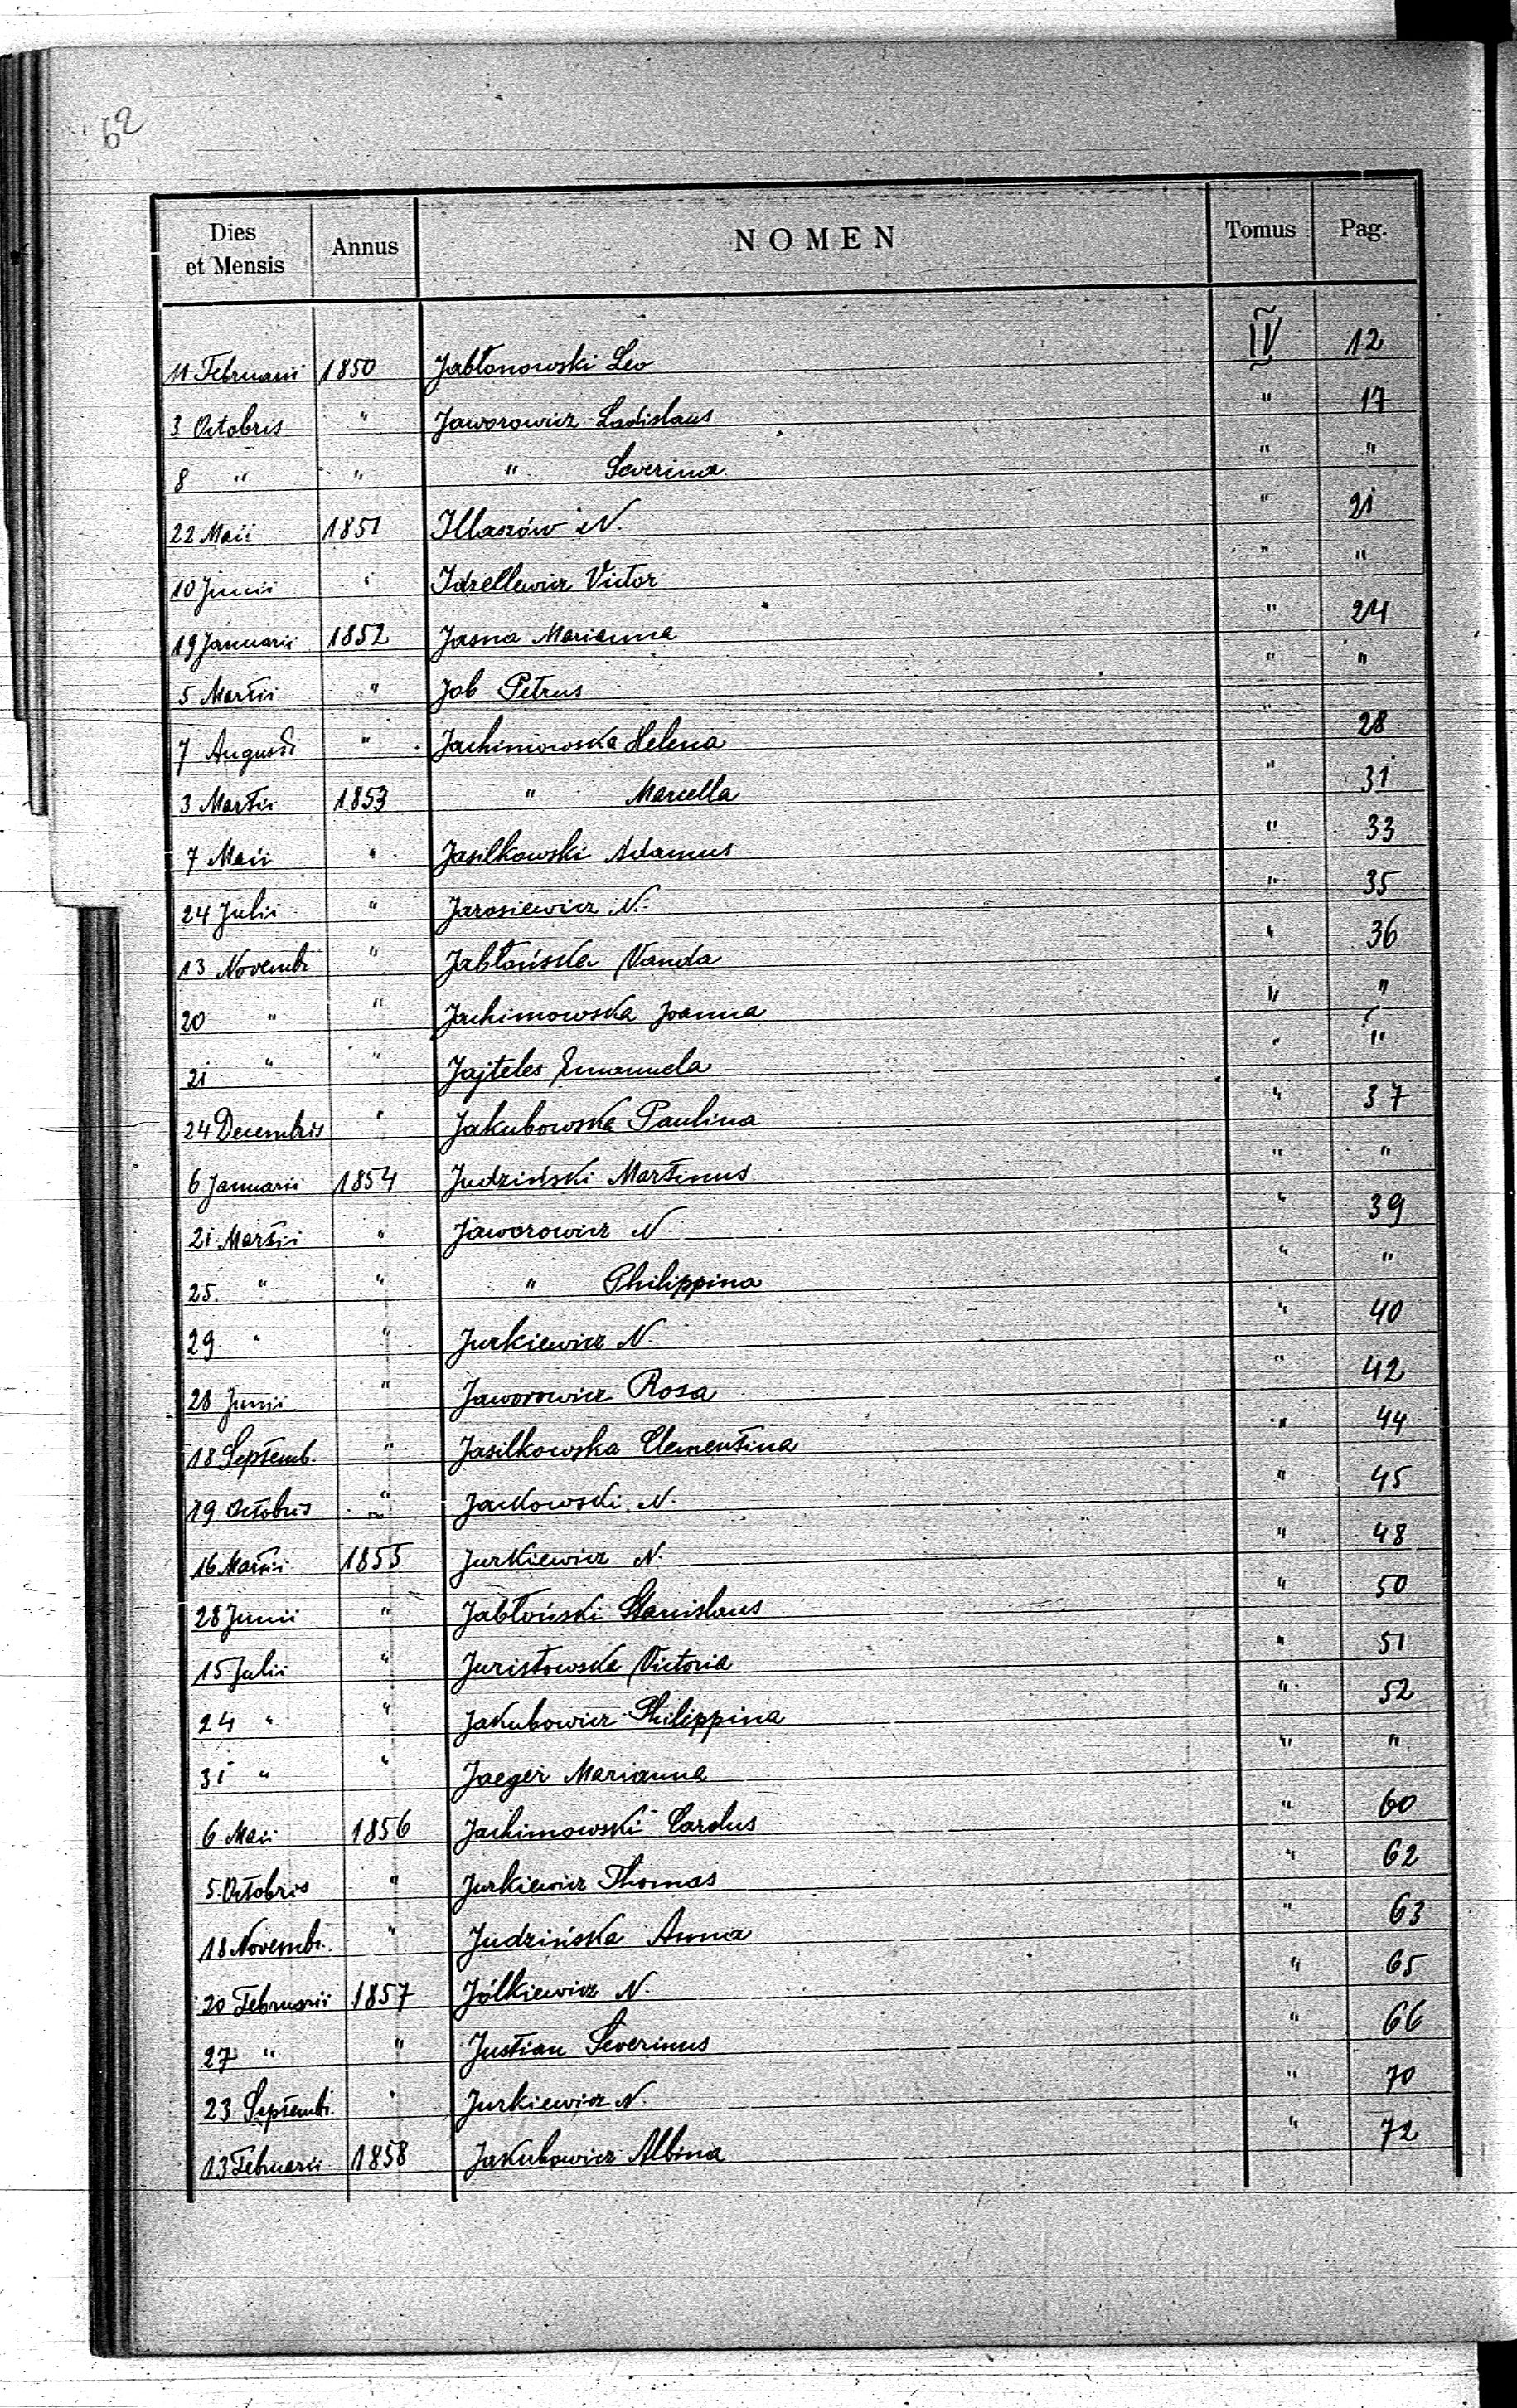 62
Dies et Mensis Annus NOMEN Tomus Pag.
11 Februarii 1850 Jabłonowski Leo IV 12
3 Octobris " Jaworowicz Ladislaus " 17
8 " " " Severina " "
22 Maii 1851 Illaszów N. " 21
10 Junii " Idzellewicz Victor " "
19 Januarii 1852 Jasna Marianna " 24
5 Martii " Job Petrus " "
7 Augusti " Jachimowska Helena " 28
3 Martii 1853 " Marcella " 31
7 Maii " Jasilkowski Adamus " 33
24 Julii " Jarosiewicz N. " 35
13 Novemb " Jabłońska Vanda " 36
20 " " Jachimowska Joanna " "
21 " " Jajteles Emanuela " "
24 Decembris " Jakubowska Paulina " 37
6 Januarii 1854 Judziński Martinus " "
21 Martii " Jaworowicz N " 39
25. " " " Philippina " "
29 " " Jurkiewicz N. " 40
28 Junii " Jaworowicz Rosa " 42
18 Septemb. " Jasilkowska Clementina " 44
19 Octobris " Jackowski N. " 45
16 Martii 1855 Jurkiewicz N. " 48
28 Junii " Jabłoński Stanislaus " 50
15 Julii " Juristowska Victoria " 51
24 " " Jakubowicz Philippina " 52
31 " " Jaeger Marianna " "
6 Maii 1856 Jachimowski Carolus " 60
5. Octobris " Jurkiewicz Thomas " 62
18 Novemb. " Judzińska Anna " 63
20 Februarii 1857 Jólkiewicz N. " 65
27 " " Justian Severinus " 66
23 Septemb. " Jurkiewicz N. " 70
13 Februarii 1858 Jakubowicz Albina " 72